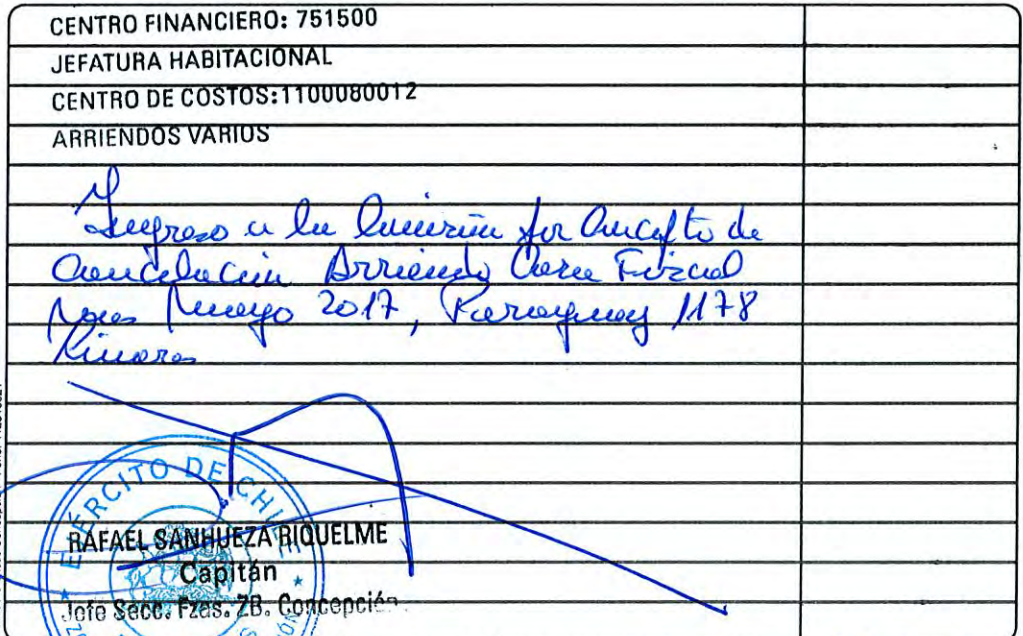 CENTRO FINANCIERO: 751500
JEFATURA HABITACIONAL
CENTRO DE COSTOS:1100080012
ARRIENDOS VARIOS
Ingreso a la por Concepto de
Cancelación Arriendo Casa Fiscal
mes mayo 2017, Paraguay 1178
Linares
EJÉRCITO DE CHILE
RAFAEL SANHUEZA RIQUELME
Capitán
Jefe Secc. Fzas. ZB. Concepción